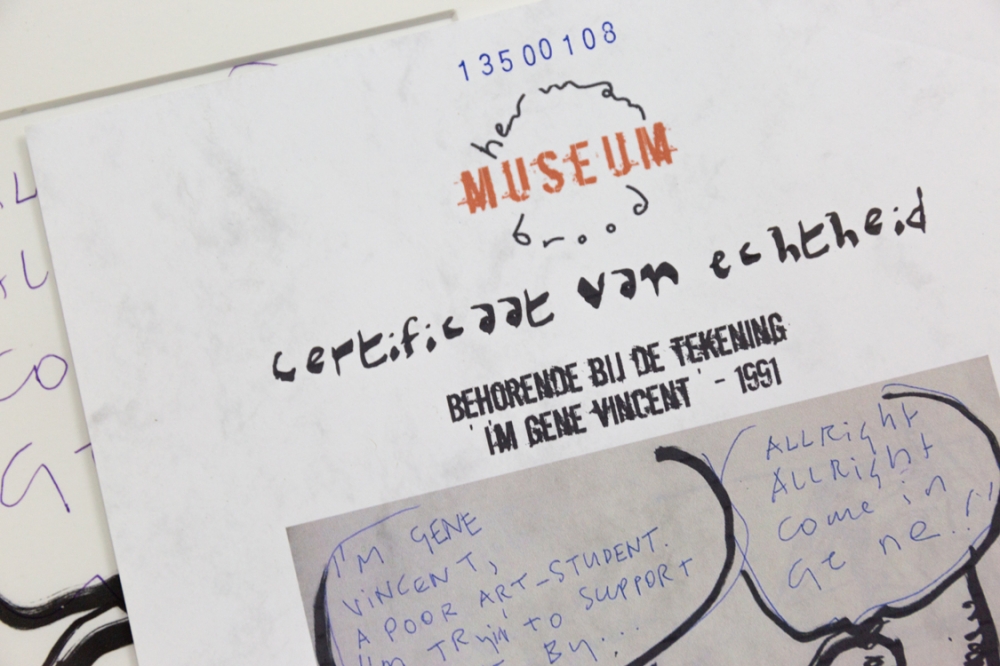 13500108
herman
MUSEUM
brood
certificaat van echtheid
BEHORENDE BIJ DE TEKENING
'I'M GENE VINCENT' - 1991
I'M GENE
VINCENT,
A POOR ART-STUDENT.
I'M TRYiN to SUPPORT
BY...
ALLRight
ALLRight
come in
Ge ne..!!